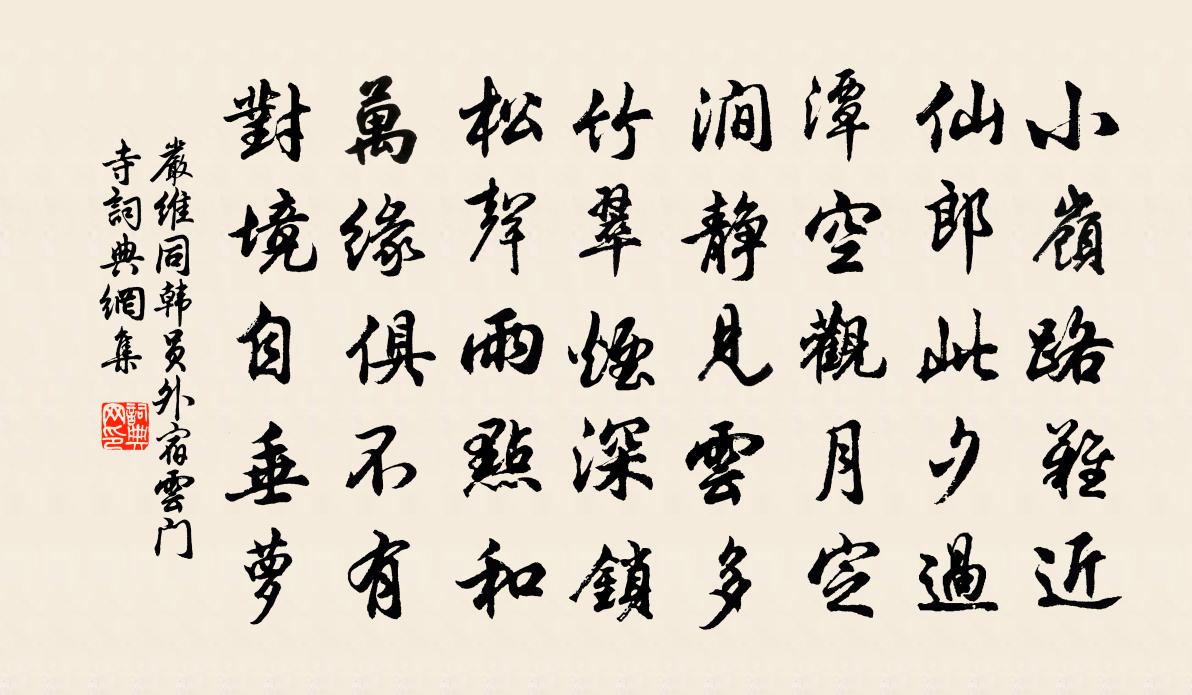 小嶺路難近
仙郎此夕過
潭空觀月定
澗靜見雲多
竹翠煙深鎖
松聲雨點和
萬緣俱不有
對境自垂蘿
嚴維同韩员外宿雲门
寺詞典網集
詞典网印